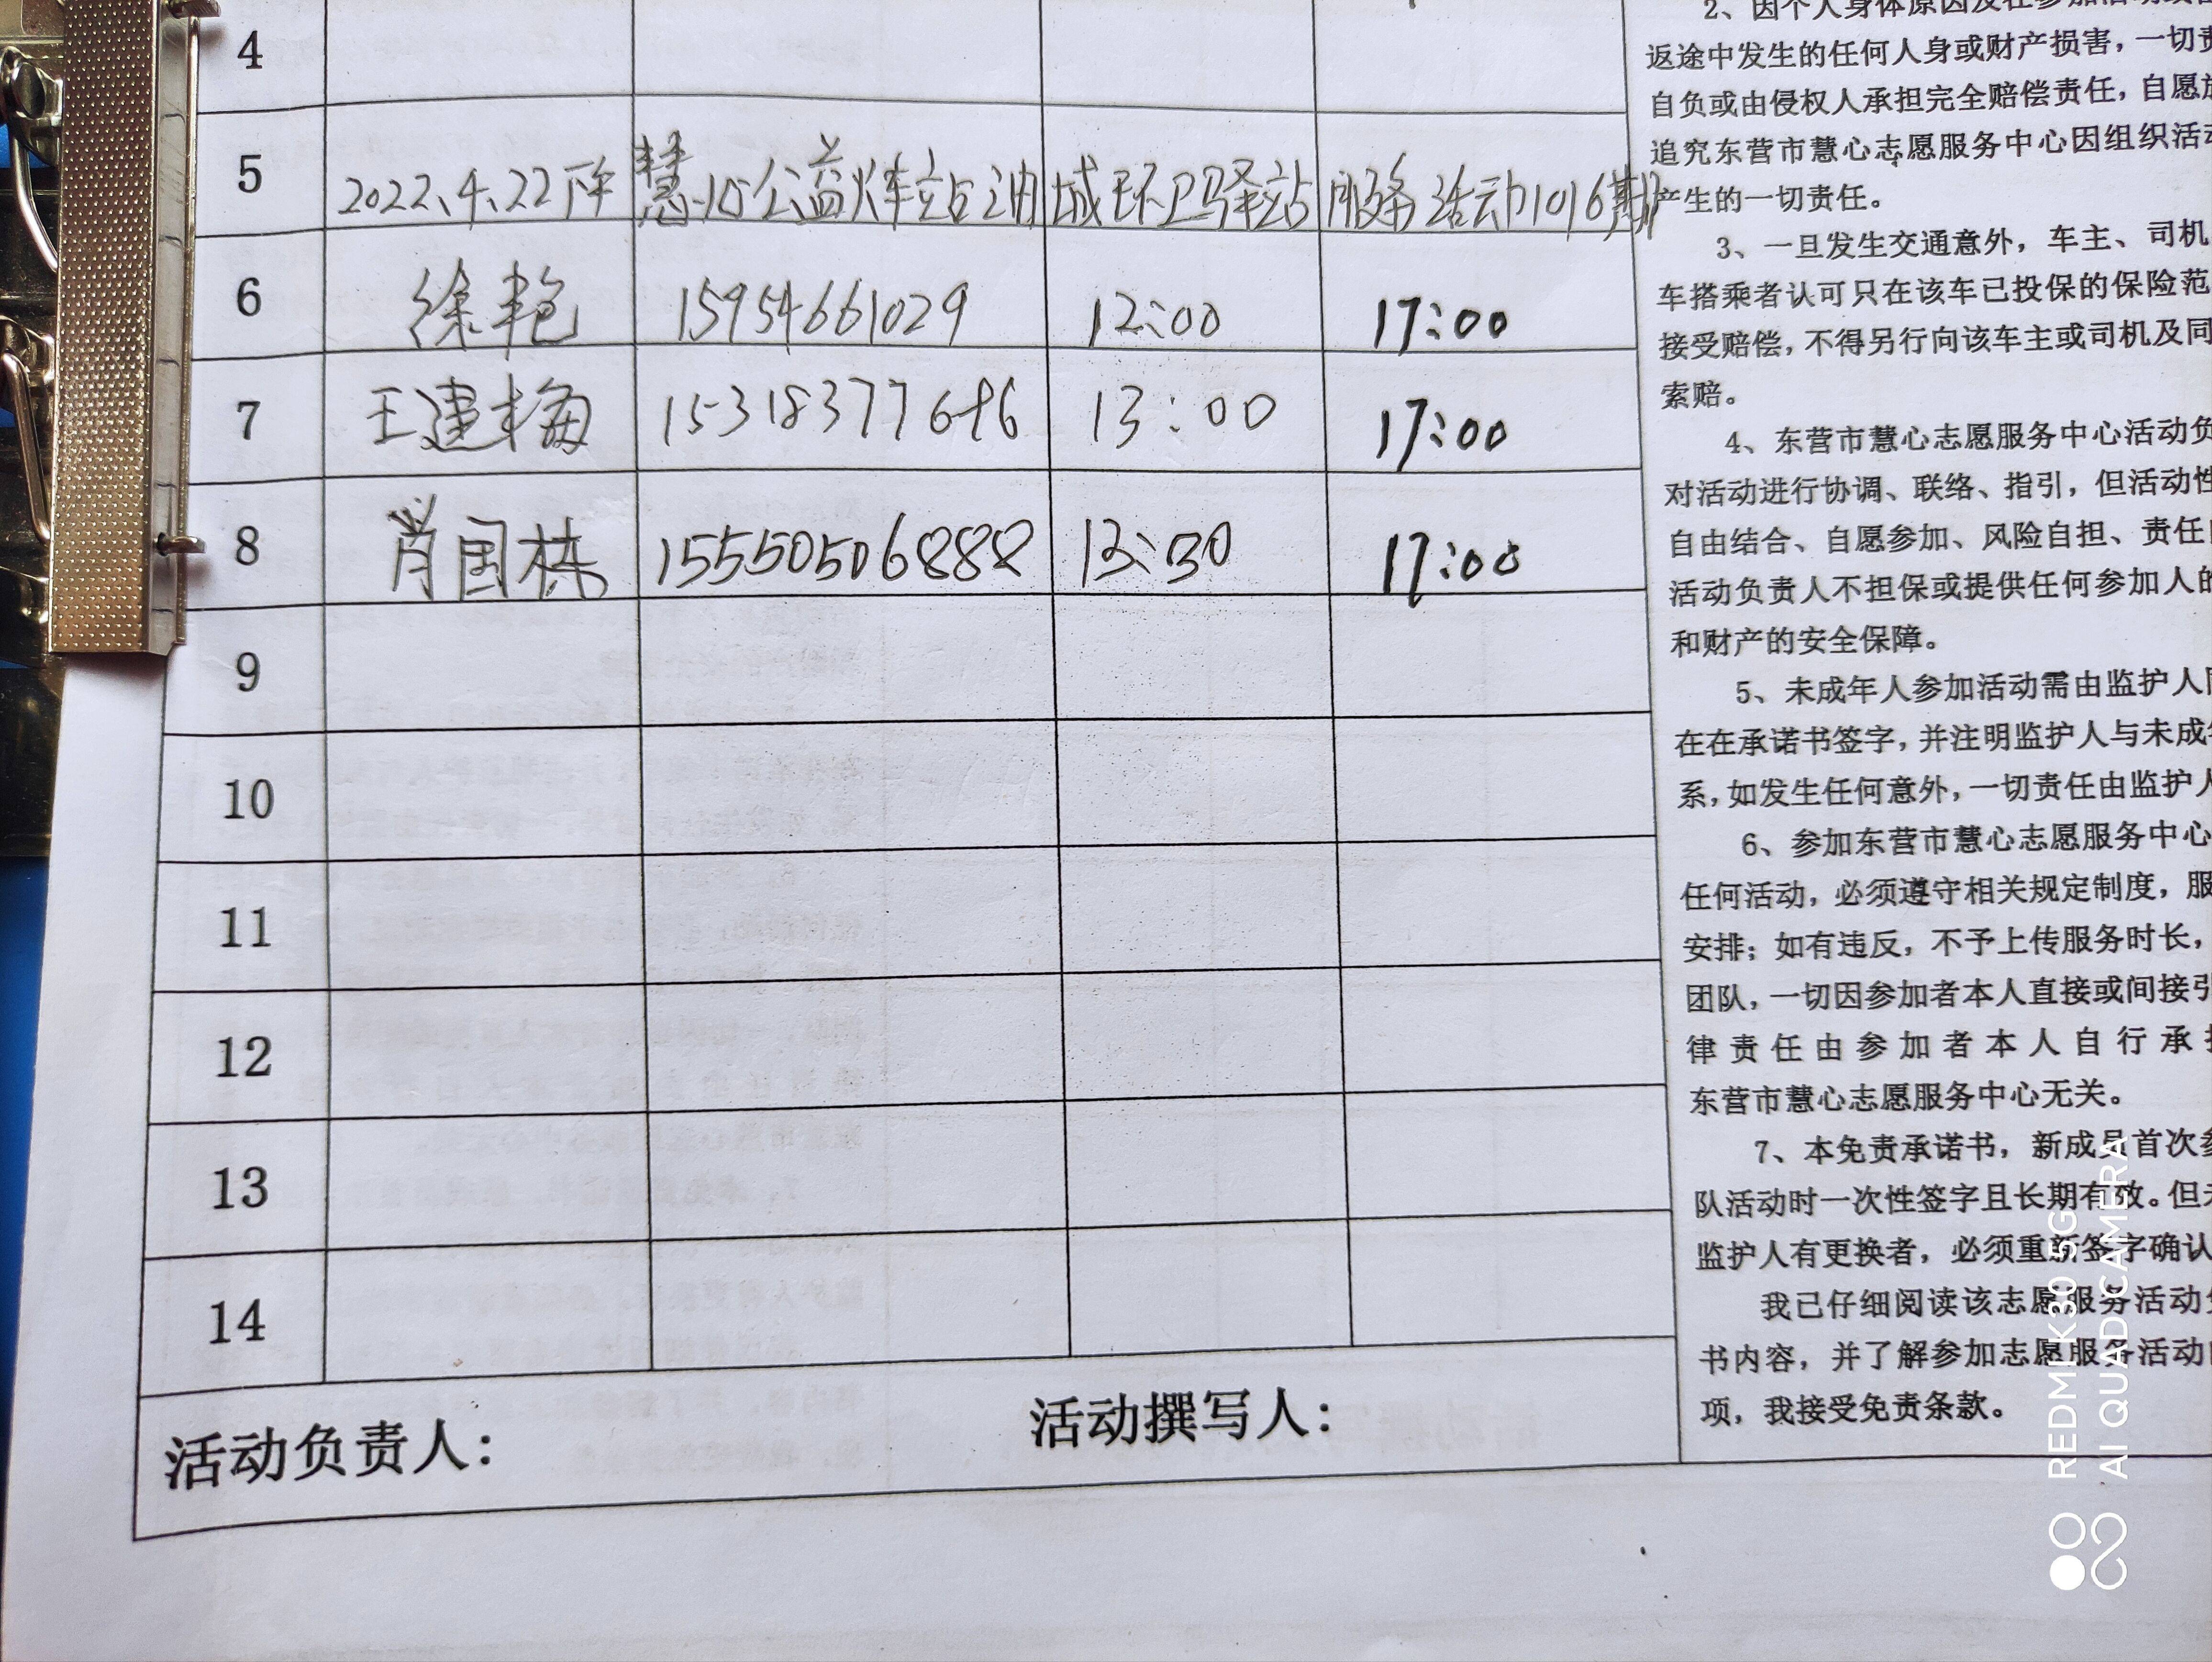 4
5 2022.4.22下午 慧心公益火车站油城环卫驿站服务活动1016期
6 徐艳 15954661029 12:00 17:00
7 王建梅 15318377696 13:00 17:00
8 肖国栋 15550506888 13:30 17:00
9
10
11
12
13
14
活动负责人: 活动撰写人:
2、因个人身体原因及在参加活动
返途中发生的任何人身或财产损害，一切责
自负或由侵权人承担完全赔偿责任，自愿放
追究东营市慧心志愿服务中心因组织活动
产生的一切责任。
3、一旦发生交通意外，车主、司机
车搭乘者认可只在该车已投保的保险范
接受赔偿，不得另行向该车主或司机及同
索赔。
4、东营市慧心志愿服务中心活动负
对活动进行协调、联络、指引，但活动性
自由结合、自愿参加、风险自担、责任自
活动负责人不担保或提供任何参加人的
和财产的安全保障。
5、未成年人参加活动需由监护人同
在在承诺书签字，并注明监护人与未成年
系，如发生任何意外，一切责任由监护人
6、参加东营市慧心志愿服务中心
任何活动，必须遵守相关规定制度，服
安排；如有违反，不予上传服务时长，
团队，一切因参加者本人直接或间接引
律责任由参加者本人自行承担
东营市慧心志愿服务中心无关。
7、本免责承诺书，新成员首次参
队活动时一次性签字且长期有效。但未
监护人有更换者，必须重新签字确认
我已仔细阅读该志愿服务活动免
书内容，并了解参加志愿服务活动的
项，我接受免责条款。
REDMI K30 5G
AI QUAD CAMERA